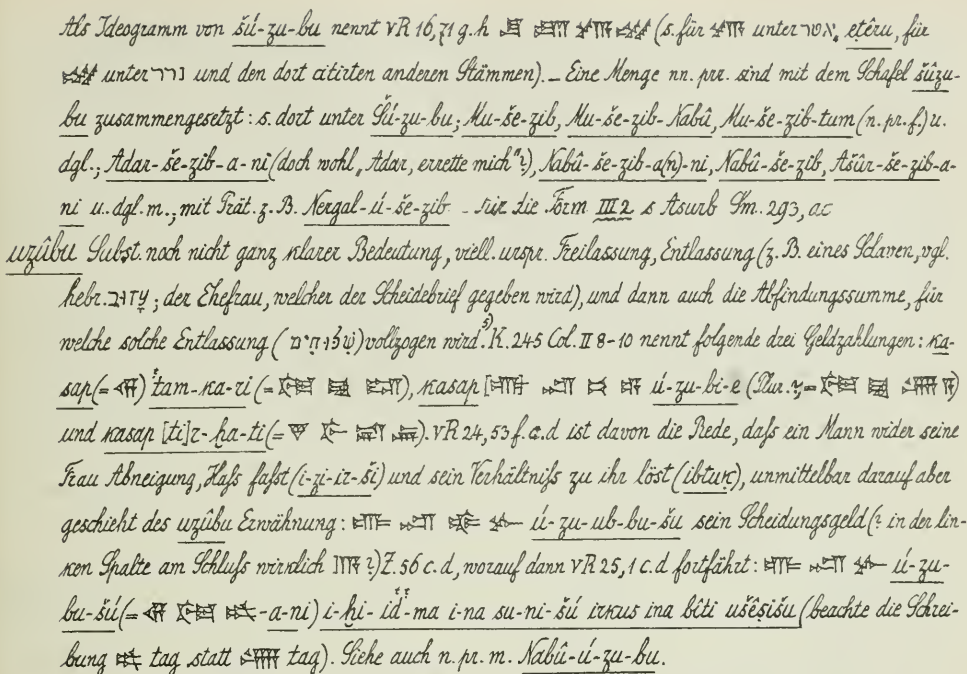 Als Ideogramm von šú-zu-bu nennt VR 16,71 g.h (s. für unter אטר, eṭêru, für
unter נרר und den dort citirten anderen Stämmen). — Eine Menge nn. prr. sind mit dem Schafel šûzu-
bu zusammengesetzt: s. dort unter Šú-zu-bu; Mu-še-zib, Mu-še-zib-Nabû, Mu-še-zib-tum (n. pr. f.) u.
dgl.; Adar-še-zib-a-ni (doch wohl „Adar, errette mich"?), Nabû-še-zib-a(n)-ni, Nabû-še-zib, Ašûr-še-zib-a-
ni u. dgl. m.; mit Prät. z. B. Nergal-ú-še-zib - Für die Form III 2 s Asurb Sm. 293, ac
uzûbu Subst. noch nicht ganz klarer Bedeutung, viell. urspr. Freilassung, Entlassung (z. B. eines Sclaven, vgl.
hebr. עזוב; der Ehefrau, welcher der Scheidebrief gegeben wird), und dann auch die Abfindungssumme, für
welche solche Entlassung (שׁלּוחים) vollzogen wird. 5) K. 245 Col. II 8-10 nennt folgende drei Geldzahlungen: ka-
sap (= ) tam-ka-ri (= ), kasap ú-zu-bi-e (Plur.? = )
und kasap [ti]r-ḫa-ti (= ). VR 24, 53 f. c.d ist davon die Rede, daſs ein Mann wider seine
Frau Abneigung, Haſs faſst (i-zi-ir-ši) und sein Verhältniſs zu ihr löst (ibtuḳ), unmittelbar darauf aber
geschieht des uzûbu Erwähnung: ú-zu-ub-bu-šu sein Scheidungsgeld (? in der lin-
ken Spalte am Schluſs wirklich ?) Z. 56 c. d, worauf dann VR 25, 1 c. d fortfährt: ú-zu-
bu-šú (= -a-ni) i-ḫi-id-ma i-na su-ni-šú irkus ina bîti ušêṣišu (beachte die Schrei-
bung tag statt tag). Siehe auch n. pr. m. Nabû-ú-zu-bu.